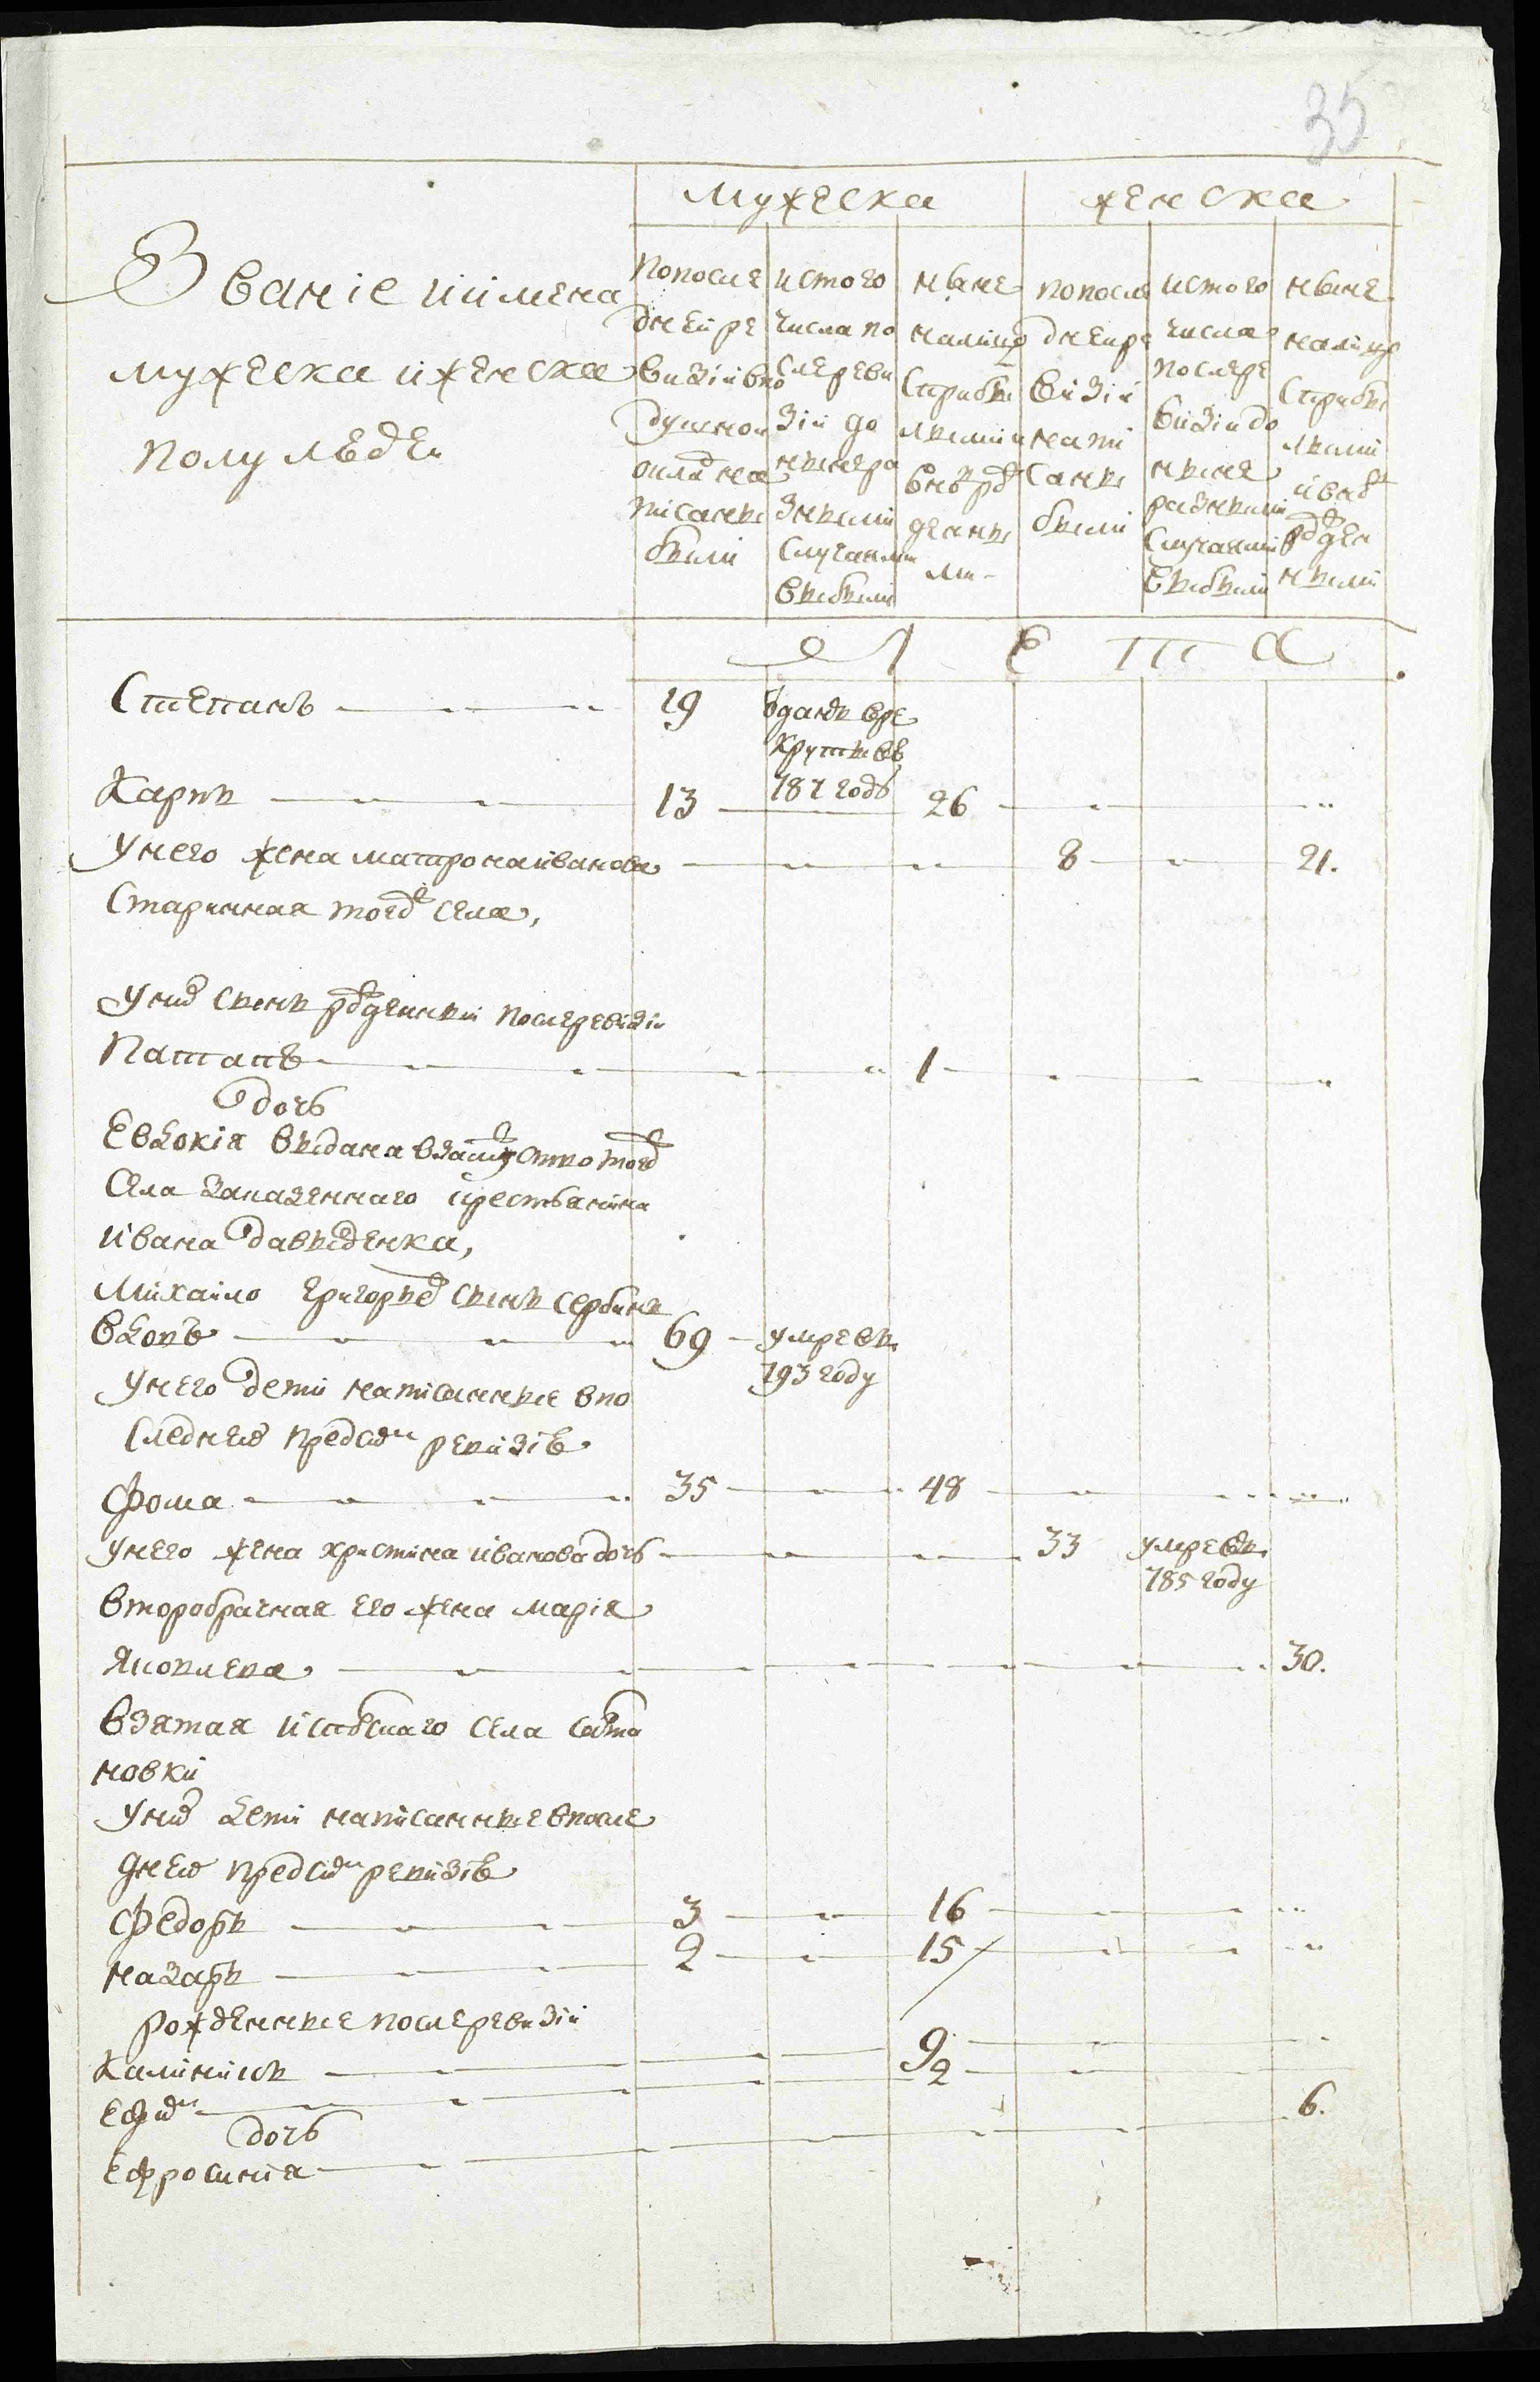 35
мужеска
женска
Званіе иимена
мужеска иженска
полу людеи
попосле
днеи ре
визіи впо
душном
окладе на
писаны
были
истого
числа по
слереви
зіи до
ныне ра
зными
случаями
выбыли
ныне
налицо
сприбы
лыми и
вновь рож
денны
ми
попосле
днеире
визіи
напи
саны
были
истого
числа
послере
визіи до
ныне
разными
случаями
выбыли
ныне
налицо
сприбы
лыми
ивновь
рожден
ными
Л Е Т А
Степанъ 19 одданъ вре
круты въ
787 годъ
Карпъ 13 26
унего жена матрона иванова 8 21.
Старинная тогож села,
уних сынъ рожденныи послеревизіи
Патапъ 1
дочь
Евдокія выдана взамужство тогож
села казенного крестьянина
Ивана давыденка,
Михаило григорьев сынъ сербинъ
вдовъ 69 умре въ
793 году
унего дети написанные впо
следнеи предсим ревизіи
Фома 35 48
унего жена христина иванова дочь 33 умре въ
785 году
второбрачная его жена марія
Яковлева 30.
взятая
села
новки
уних дети написанные впосле
днеи предсим ревизіи
Федоръ 3 16
Назаръ 2 15
рожденные послеревизіи
Калиникъ 9
Ефим 2
дочь
Ефросинія 6.